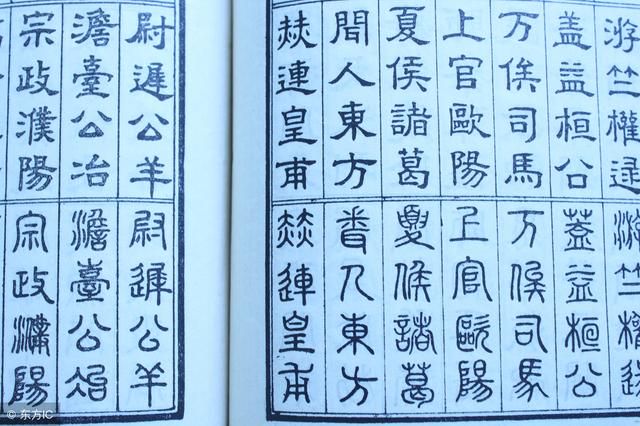 游竺權逯
蓋益桓公
万俟司馬
上官歐陽
夏侯諸葛
聞人東方
赫連皇甫
游竺權逯
蓋益桓公
万俟司馬
上官歐陽
夏侯諸葛
聞人東方
赫連皇甫
尉遲公羊
澹臺公冶
宗政濮陽
尉遲公羊
澹臺公冶
宗政濮陽
© 东方IC